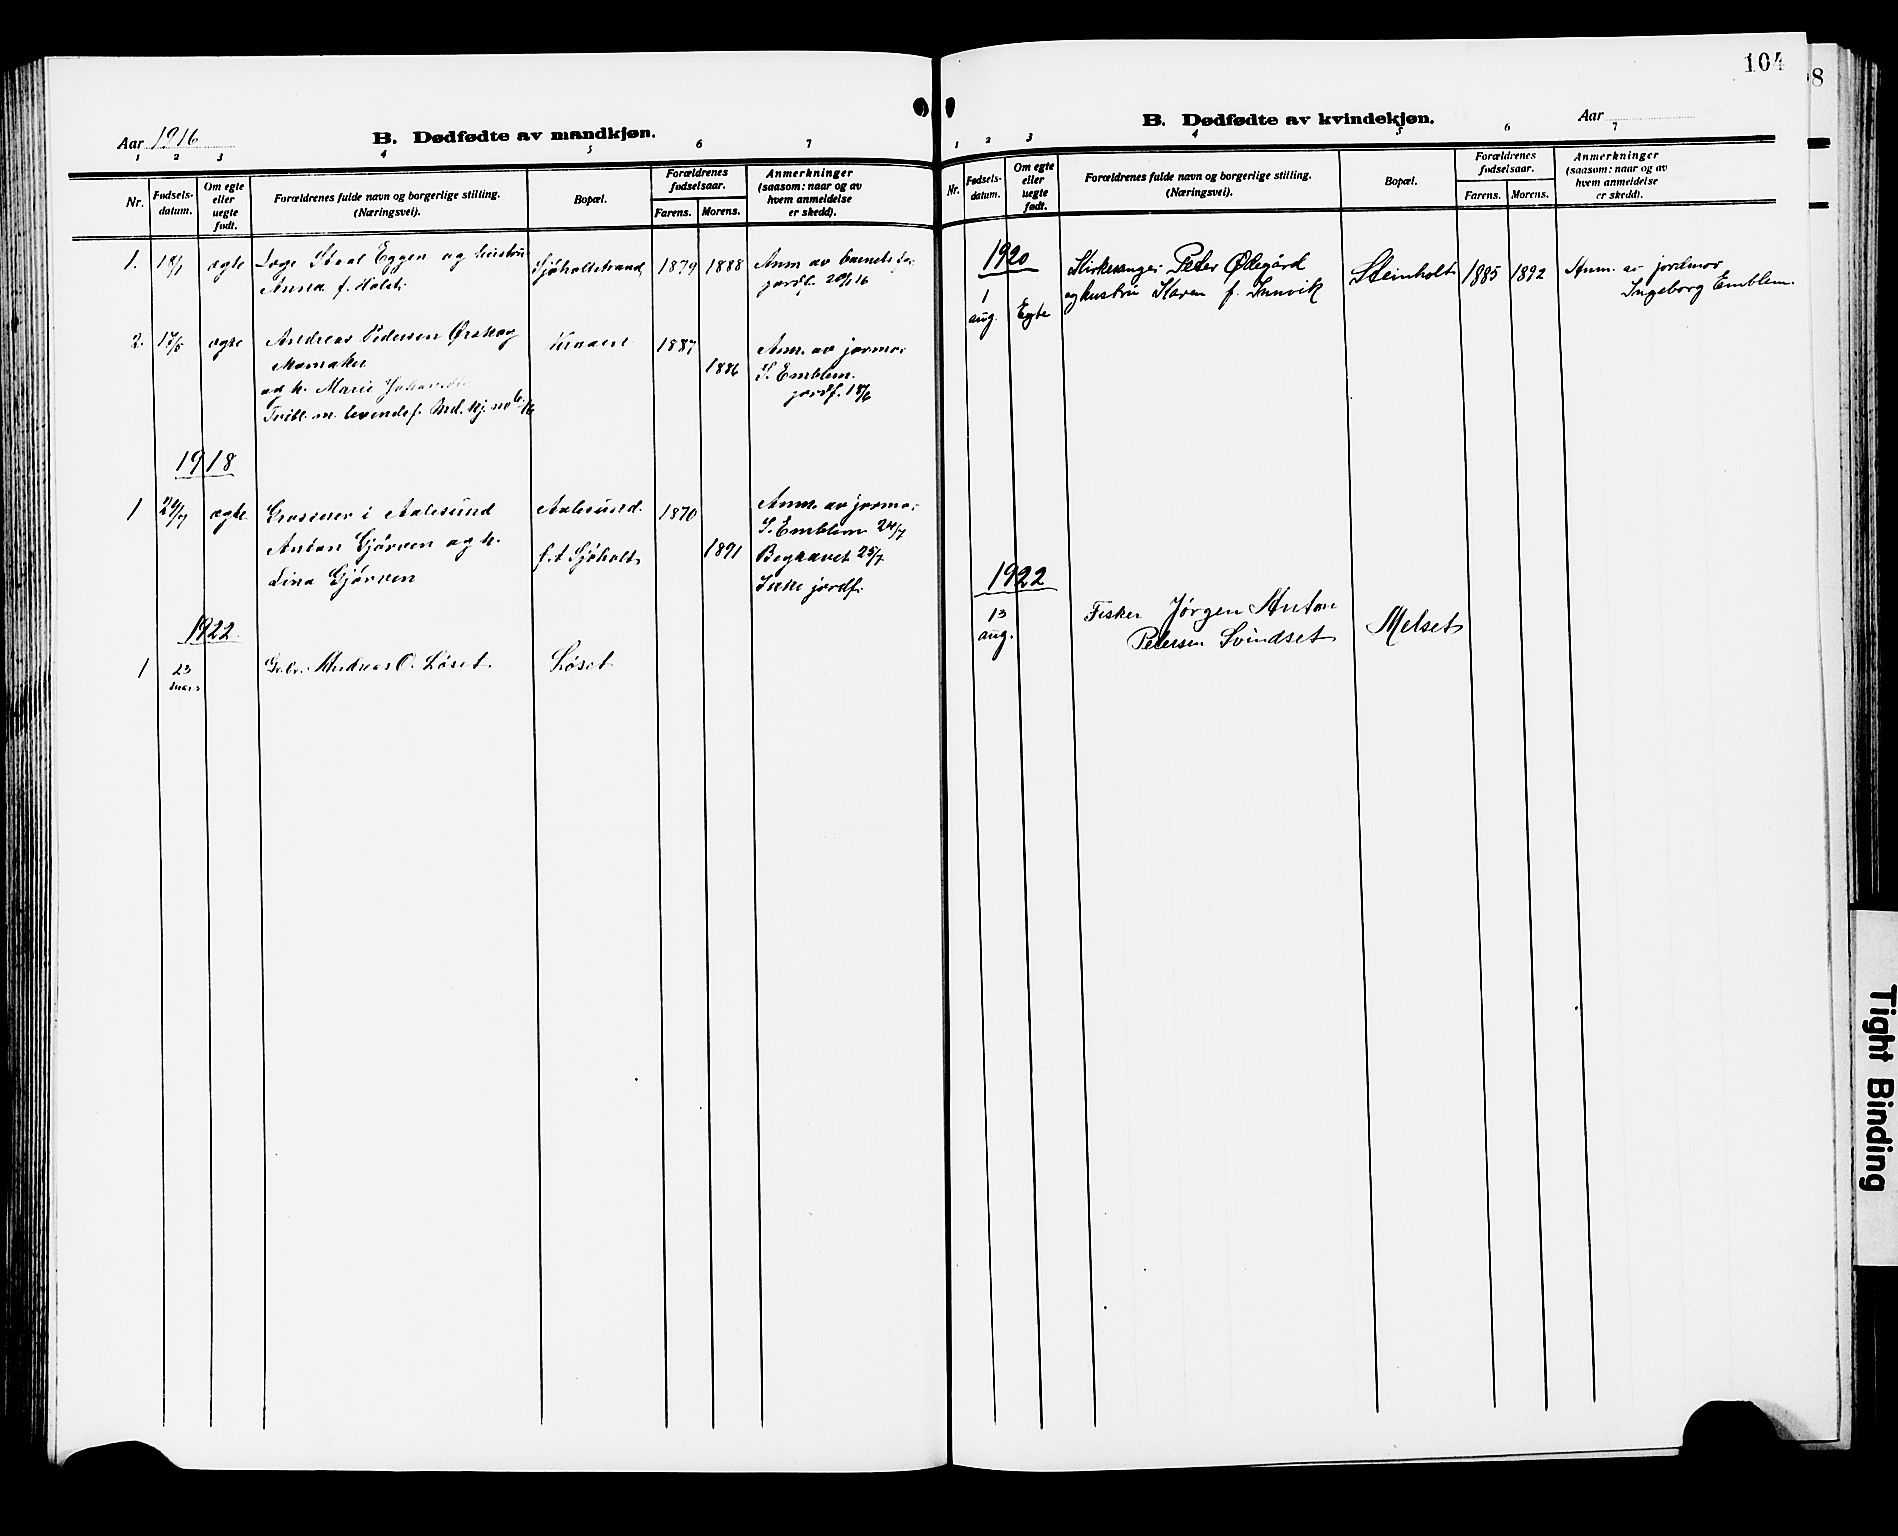 Aar 1916
B. Dødfødte av mandkjøn.
1 2 3 4 5 6 7
Nr.
Fødsels-
datum.
Om egte
eller
uegte
født.
Forældrenes fulde navn og borgerlige stilling.
(Næringsvei).
Bopæl.
Forældrenes
fødselsaar.
Farens. Morens.
Anmerkninger
(saasom: naar og av
hvem anmeldelse
er skedd).
1. 18/1 egte Læge Eggen og hustru Sjøholtstrand 1879 1888 Anm av barnets far
Anna f. Holst. jordf. 20/1 16
2. 17/5 egte Andreas Pedersen Ørskog 1887 Anm. av jormor
1886 S. Emblem.
og h. Marie jordf. 18/6
Tvill. m. levendef. Md. kj. no 6. 16
1918
1 24/7 egte Grosserer i Aalesund Aalesund. 1870 Anm. av jormor
S. Emblem 24/7
Anton Gjørven og h. f.t Sjøholt 1891 Begravet 25/7
Lina Gjørven Ikke jordf.
1922.
1 23 Gbr. Andreas O. Løset. Løset
mars
104
8
B. Dødfødte av kvindekjøn.
Aar
1 2 3 4 5 6 7
Nr.
Fødsels-
datum.
Om egte
eller
uegte
født.
Forældrenes fulde navn og borgerlige stilling.
(Næringsvei).
Bopæl.
Forældrenes
fødselsaar.
Farens. Morens.
Anmerkninger
(saasom: naar og av
hvem anmeldelse
er skedd).
1920
1 aug. Egte Kirkesanger Peter Ødegård Steinholt 1885 1892 Anm. av jordmor
og hustru Karen f. Innvik Ingeborg Emblem.
1922
13 Fisker Jørgen Anton Melset
aug. Petersen Svindset
Tight Binding